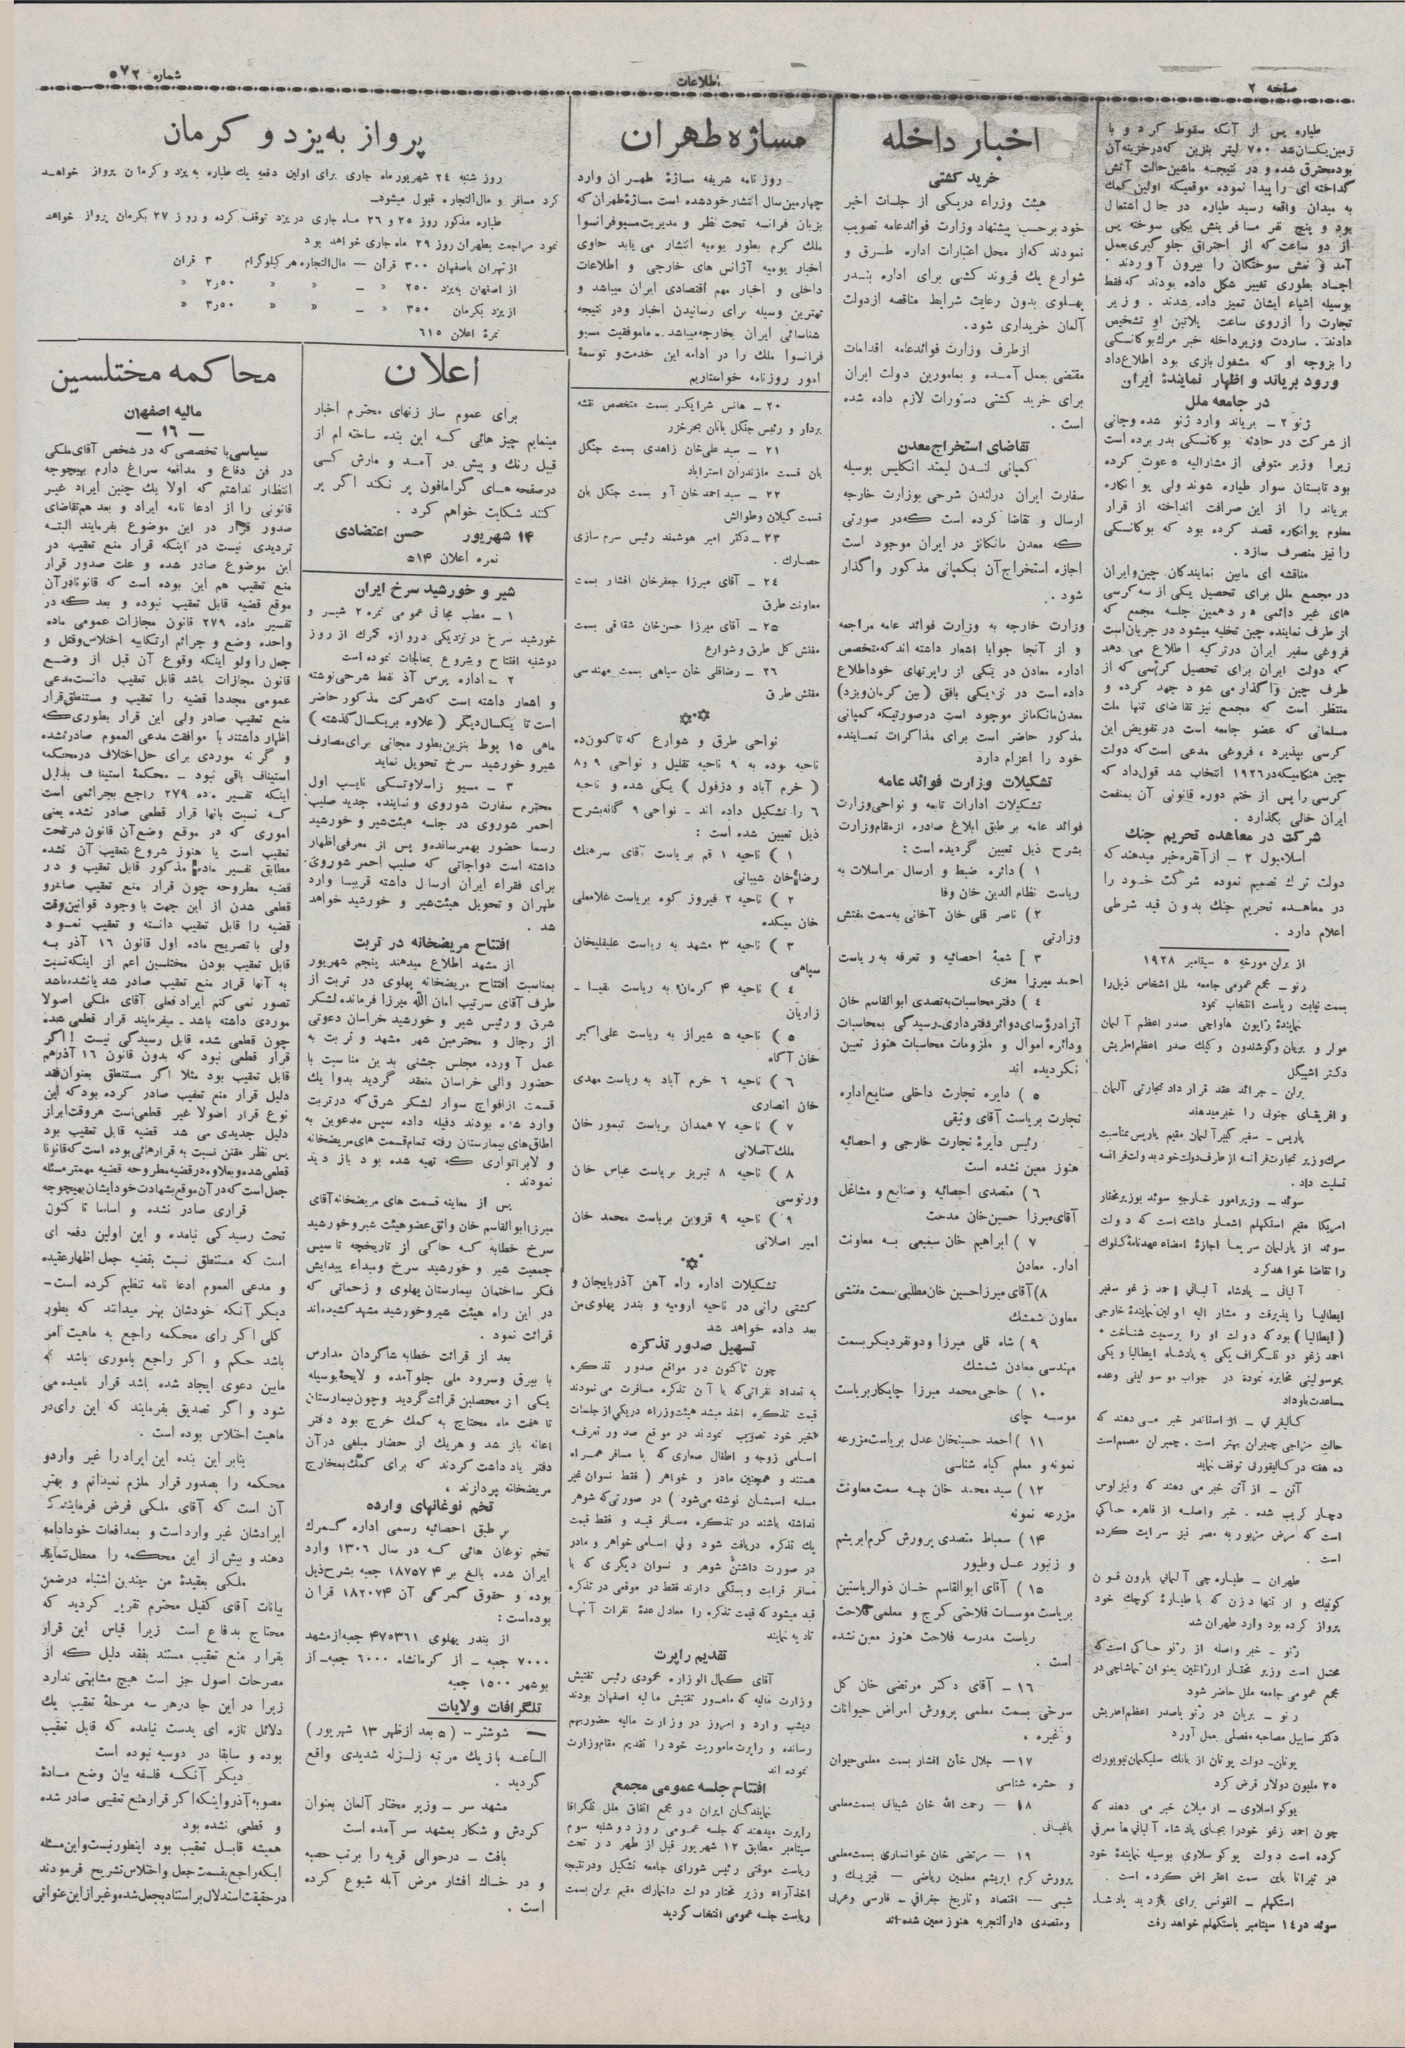 صفحه ۲
اطلاعات
شماره ۵۷۲
طیاره پس از آنکه سقوط کرد و با
زمین یکسان شد ۷۰۰ لیتر بنزین که در خزینه آن
بود محترق شده و در نتیجه ماشین حالت آتش
گداخته ای را پیدا نموده موقعیکه اولین کمک
به میدان واقعه رسید طیاره در حال اشتعال
بود و پنج نفر مسافرینش بکلی سوخته پس
از دو ساعت که از احتراق جلوگیری بعمل
آمد و نعش سوختگان را بیرون آوردند .
اجساد بطوری تغییر شکل داده بودند که فقط
بوسیله اشیاء ایشان تمیز داده شدند . وزیر
تجارت را ازروی ساعت پلاتین او تشخیص
دادند . ساردت وزیر داخله خبر مرگ بوکانسکی
را بزوجه او که مشغول بازی بود اطلاع داد
ورود بریاند و اظهار نمایندهٔ ایران
در جامعه ملل
ژنو ۲ - بریاند وارد ژنو شده وجانی
از شرکت در حادثه بوکانسکی بدر برده است
زیرا وزیر متوفی از مشارالیه دعوت کرده
بود تابستان سوار طیاره شوند ولی پوانکاره
بریاند را از این صرافت انداخته از قرار
معلوم پوانکاره قصد کرده بود که بوکانسکی
را نیز منصرف سازد .
مناقشه ای مابین نمایندگان چین وایران
در مجمع ملل برای تحصیل یکی از سه کرسی
های غیر دائمی در دهمین جلسه مجمع که
از طرف نماینده چین تخلیه میشود در جریان است
فروغی سفیر ایران درترکیه اطلاع می دهد
که دولت ایران برای تحصیل کرسی که از
طرف چین واگذار می شود جهد کرده و
منتظر است که مجمع نیز تقاضای تنها ملت
مسلمانی که عضو جامعه است در تفویض این
کرسی بپذیرد ، فروغی مدعی است که دولت
چین هنگامیکه در ۱۹۲۶ انتخاب شد قول داد که
کرسی را پس از ختم دوره قانونی آن بمنفعت
ایران خالی بگذارد .
شرکت در معاهده تحریم جنگ
اسلامبول ۲ - از آنقره خبر میدهند که
دولت ترک تصمیم نموده شرکت خود را
در معاهده تحریم جنگ بدون قید شرطی
اعلام دارد .
از برلن مورخه ۵ سپتامبر ۱۹۲۸
رنو - مجمع عمومی جامعه ملل اشخاص ذیل را
بسمت نیابت ریاست انتخاب نمود
نمایندهٔ ژاپون هاواجی صدر اعظم آلمان
مولر و بریان وکوشندون وکیک صدر اعظم اطریش
دکتر اشپیگل
برلن - جرائد عقد قرارداد تجارتی آلمان
و افریقای جنوبی را خبر میدهند
پاریس - سفیر کبیر آلمان مقیم پاریس بمناسبت
مرگ وزیر تجارت فرانسه از طرف دولت خود بدولت فرانسه
تسلیت داد .
سوئد - وزیر امور خارجه سوئد بوزیر مختار
امریکا مقیم استکهلم اشعار داشته است که دولت
سوئد از پارلمان سریعا اجازهٔ امضاء عهدنامهٔ کلوگ
را تقاضا خواهد کرد
آلبانی - پادشاه آلبانی احمد زغو سفیر
ایطالیا را پذیرفت و مشار الیه اولین نمایندهٔ خارجی
( ایطالیا ) بود که دولت او را برسمیت شناخت .
احمد زغو دو تلگراف یکی به پادشاه ایطالیا و یکی
بموسولینی مخابره نموده در جواب موسولینی وعده
مساعدت باو داد
حالت مزاجی چمبران بهتر است . چمبران مصمم است
ده هفته در کالیفورنی توقف نماید
آتن - از آتن خبر می دهند که ونیزلوس
دچار کریپ شده . خبر واصله از قاهره حاکی
است که مرض مزبور به مصر نیز سرایت کرده
است .
طهران - طیاره چی آلمانی بارون فون
کونیک وار تنها دزن که با طیارهٔ کوچک خود
پرواز کرده بود وارد طهران شد
ژنو - خبر واصله از رنو حاکی است که
محتمل است وزیر مختار ارژانتین بعنوان تماشاچی در
مجمع عمومی جامعه ملل حاضر شود
رنو - بریان در رنو با صدر اعظم اطریش
دکتر سایپل مصاحبه مفصلی بعمل آورد
یونان - دولت یونان از بانک سلیگمان نیویورک
۲۵ ملیون دولار قرض کرد
یوگواسلاوی - از میلان خبر می دهند که
چون احمد زغو خود را بجای پادشاه آلبانی ها معرفی
کرده است دولت یوگوسلاوی بوسیله نمایندهٔ خود
در تیرانا باین سمت اعتراض کرده است .
استکهلم - الفونس برای بازدید پادشاه
سوئد در ۱۴ سپتامبر باستکهلم خواهد رفت
اخبار داخله
خرید کشتی
هیئت وزراء دریکی از جلسات اخیر
خود برحسب پیشنهاد وزارت فوائدعامه تصویب
نمودند که از محل اعتبارات اداره طرق و
شوارع یک فروند کشتی برای اداره بندر
پهلوی بدون رعایت شرایط مناقصه ازدولت
آلمان خریداری شود .
ازطرف وزارت فوائدعامه اقدامات
مقتضی بعمل آمده و بمامورین دولت ایران
برای خرید کشتی دستورات لازم داده شده
است .
تقاضای استخراج معدن
کمپانی لندن لیمتد انگلیس بوسیله
سفارت ایران درلندن شرحی بوزارت خارجه
ارسال و تقاضا کرده است که در صورتی
که معدن مانگانز در ایران موجود است
اجازه استخراج آن بکمپانی مذکور واگذار
شود .
وزارت خارجه به وزارت فوائد عامه مراجعه
و از آنجا جوابا اشعار داشته اند که متخصص
اداره معادن در یکی از راپرتهای خود اطلاع
داده است در نزدیکی بافق ( بین کرمان ویزد )
معدن مانگانز موجود است درصورتیکه کمپانی
مذکور حاضر است برای مذاکرات نماینده
خود را اعزام دارد
تشکیلات وزارت فوائد عامه
تشکیلات ادارات تابعه و نواحی وزارت
فوائد عامه برطبق ابلاغ صادره از مقام وزارت
بشرح ذیل تعیین گردیده است :
۱ ) دائره ضبط و ارسال مراسلات به
ریاست نظام الدین خان وفا
۲ ) ناصر قلی خان آخانی به سمت مفتش
وزارتی
۳ ] شعبهٔ احصائیه و تعرفه به ریاست
احمد میرزا معزی
۴ ) دفتر محاسبات به تصدی ابوالقاسم خان
آزاد رؤسای دوائر دفترداری . رسیدگی بمحاسبات
ودائره اموال و ملزومات محاسبات هنوز تعیین
نگردیده اند
۵ ) دایره تجارت داخلی صنایع اداره
تجارت بریاست آقای وثیقی
رئیس دایرهٔ تجارت خارجی و احصائیه
هنوز معین نشده است
۶ ) متصدی احصائیه و صنایع و مشاغل
آقای میرزا حسین خان مدحت
۷ ) ابراهیم خان سمیعی به معاونت
اداره معادن
۸) آقای میرزا حسین خان مطلبی سمت مفتشی
معاون شمشک
۹ ) شاه قلی میرزا ودو نفر دیگر بسمت
مهندسی معادن شمشک
۱۰ ) حاجی محمد میرزا چایکار بریاست
موسسه چای
۱۱ ) احمد حسینخان عدل بریاست مزرعه
نمونه و معلم گیاه شناسی
۱۲ ) سید محمد خان به سمت معاونت
مزرعه نمونه
۱۴ ) سمباط متصدی پرورش کرم ابریشم
و زنبور عسل وطیور
۱۵ ) آقای ابوالقاسم خان ذوالریاستین
بریاست موسسات فلاحتی کرج و معلمی فلاحت
ریاست مدرسه فلاحت هنوز معین نشده
است .
۱۶ - آقای دکتر مرتضی خان گل
سرخی بسمت معلمی پرورش امراض حیوانات
و غیره .
۱۷ - جلال خان افشار بسمت معلمی حیوان
و حشره شناسی
۱۸ - رحمت الله خان شیبانی بسمت معلمی
باغبانی
۱۹ - مرتضی خان خوانساری بسمت معلمی
پرورش کرم ابریشم معلمین ریاضی - فیزیک و
شیمی - اقتصاد و تاریخ جغرافی - فارسی وعربی
ومتصدی دارالتجربه هنوز معین شده اند
مساژه طهران
روزنامه شریفه مساژهٔ طهران وارد
چهارمین سال انتشار خود شده است مساژهٔ طهران که
بزبان فرانسه تحت نظر و مدیریت مسیو فرانسوا
ملک کرم بطور یومیه انتشار می یابد حاوی
اخبار یومیه آژانس های خارجی و اطلاعات
داخلی و اخبار مهم اقتصادی ایران میباشد و
بهترین وسیله برای رسانیدن اخبار ودر نتیجه
شناسائی ایران بخارجه میباشد . ما موفقیت مسیو
فرانسوا ملک را در ادامه این خدمت و توسعهٔ
امور روزنامه خواستاریم
۲۰ - هانس شرایکر بسمت متخصص نقشه
بردار و رئیس جنگل بانان بحرخزر
۲۱ - سید علی خان زاهدی بسمت جنگل
بان قسمت مازندران استراباد
۲۲ - سید احمد خان آو بسمت جنگل بان
قسمت گیلان وطوالش
۲۳ - دکتر امیر هوشمند رئیس سرم سازی
حصارک .
۲۴ - آقای میرزا جعفرخان افشار بسمت
معاونت طرق
۲۵ - آقای میرزا حسن خان شقاقی بسمت
مفتش کل طرق و شوارع
۲۶ - رضاقلی خان سپاهی بسمت مهندسی
مفتش طرق
نواحی طرق و شوارع که تاکنون ده
ناحیه بوده به ۹ ناحیه تقلیل و نواحی ۹ و ۸
( خرم آباد و دزفول ) یکی شده و ناحیه
۶ را تشکیل داده اند - نواحی ۹ گانه بشرح
ذیل تعیین شده است :
۱ ) ناحیه ۱ قم بریاست آقای سرهنگ
رضاخان شیبانی
۲ ) ناحیه ۲ فیروز کوه بریاست غلامعلی
خان میکده
۳ ) ناحیه ۳ مشهد به ریاست علیقلیخان
سپاهی
۴ ) ناحیه ۴ کرمان به ریاست
زاریان
۵ ) ناحیه ۵ شیراز به ریاست علی اکبر
خان آگاه
۶ ) ناحیه ۶ خرم آباد به ریاست مهدی
خان انصاری
۷ ) ناحیه ۷ همدان بریاست تیمور خان
ملک آصلانی
۸ ) ناحیه ۸ تبریز بریاست عباس خان
ورنوسی
۹ ) ناحیه ۹ قزوین بریاست محمد خان
امیر اصلانی
تشکیلات اداره راه آهن آذربایجان و
کشتی رانی در ناحیه ارومیه و بندر پهلوی من
بعد داده خواهد شد
تسهیل صدور تذکره
چون تاکنون در مواقع صدور تذکره
به تعداد نفراتی که با آن تذکره مسافرت می نمودند
قیمت تذکره اخذ میشد هیئت وزراء دریکی از جلسات
اخیر خود تصویب نمودند در موقع صدور تعرفه
اسامی زوجه و اطفال صغاری که با مسافر همراه
هستند و همچنین مادر و خواهر ( فقط نسوان غیر
مسلمه اسمشان نوشته می شود ) در صورتی که شوهر
نداشته باشند در تذکره مسافر قید و فقط قیمت
یک تذکره دریافت شود ولی اسامی خواهر و مادر
در صورت داشتن شوهر و نسوان دیگری که با
مسافر قرابت وبستگی دارند فقط در موقعی در تذکره
قید میشود که قیمت تذکره را معادل عدهٔ نفرات آنها
تادیه نمایند
تقدیم راپرت
آقای کمال الوزاره محمودی رئیس تفتیش
وزارت مالیه که مامور تفتیش مالیه اصفهان بودند
دیشب وارد و امروز در وزارت مالیه حضور بهم
رسانده و راپرت ماموریت خود را تقدیم مقام وزارت
نموده اند
افتتاح جلسه عمومی مجمع
نمایندگان ایران در مجمع اتفاق ملل تلگرافا
راپرت میدهند که جلسه عمومی روز دوشنبه سوم
سپتامبر مطابق ۱۲ شهریور قبل از ظهر در تحت
ریاست موقتی رئیس شورای جامعه تشکیل ودر نتیجه
اخذ آراء وزیر مختار دولت دانمارک مقیم برلن بسمت
ریاست جلسه عمومی انتخاب گردید
پرواز به یزد و کرمان
روز شنبه ۲۴ شهریور ماه جاری برای اولین دفعه یک طیاره به یزد و کرمان پرواز خواهد
کرد مسافر و مال التجاره قبول میشود .
طیاره مذکور روز ۲۵ و ۲۶ ماه جاری در یزد توقف کرده و روز ۲۷ بکرمان پرواز خواهد
نمود مراجعت بطهران روز ۲۹ ماه جاری خواهد بود
از تهران باصفهان ۳۰۰ قران - مال التجاره هر کیلوگرام ۳ قران
از اصفهان به یزد ۲۵۰ « - « « ۲ر۵۰ «
از یزد بکرمان ۳۵۰ « - « « ۳ر۵۰ «
نمرهٔ اعلان ۶۱۵
اعلان
برای عموم ساز زنهای محترم اخبار
مینمایم چیز هائی که این بنده ساخته ام از
قبیل رنگ و پیش در آمد و مارش کسی
در صفحه های گرامافون پر نکند اگر پر
کنند شکایت خواهم کرد .
۱۴ شهریور حسن اعتضادی
نمره اعلان ۵۱۴
شیر و خورشید سرخ ایران
۱ - مطب مجانی عمومی نمره ۲ شیر و
خورشید سرخ در نزدیکی دروازه گمرک از روز
دوشنبه افتتاح و شروع بمعالجات نموده است
۲ - اداره پرس آذ نفط شرحی نوشته
و اشعار داشته است که شرکت مذکور حاضر
است تا یکسال دیگر ( علاوه بر یکسال گذشته )
ماهی ۱۵ پوط بنزین بطور مجانی برای مصارف
شیرو خورشید سرخ تحویل نماید
۳ - مسیو زاسلاوتسکی نایب اول
محترم سفارت شوروی و نماینده جدید صلیب
احمر شوروی در جلسه هیئت شیر و خورشید
رسما حضور بهمرسانده و پس از معرفی اظهار
داشته است دواجاتی که صلیب احمر شوروی
برای فقراء ایران ارسال داشته قریبا وارد
طهران و تحویل هیئت شیر و خورشید خواهد
شد .
افتتاح مریضخانه در تربت
از مشهد اطلاع میدهند پنجم شهریور
بمناسبت افتتاح مریضخانه پهلوی در تربت از
طرف آقای سرتیپ امان الله میرزا فرمانده لشکر
شرق و رئیس شیر و خورشید خراسان دعوتی
از رجال و محترمین شهر مشهد و تربت به
عمل آورده مجلس جشنی بدین مناسبت با
حضور والی خراسان منعقد گردید بدوا یک
قسمت از افواج سوار لشکر شرق که در تربت
وارد شده بودند دفیله داده سپس مدعوین به
اطاق های بیمارستان رفته تمام قسمت های مریضخانه
و لابراتواری که تهیه شده بود بازدید
نمودند .
پس از معاینه قسمت های مریضخانه آقای
میرزا ابوالقاسم خان واثق عضو هیئت شیر و خورشید
سرخ خطابه که حاکی از تاریخچه تاسیس
جمعیت شیر و خورشید سرخ ومبداء پیدایش
فکر ساختمان بیمارستان پهلوی و زحماتی که
در این راه هیئت شیر و خورشید مشهد کشیده اند
قرائت نمود .
بعد از قرائت خطابه شاگردان مدارس
با بیرق وسرود ملی جلو آمده و لایحهٔ بوسیله
یکی از محصلین قرائت گردید وچون بیمارستان
تا هفت ماه محتاج به کمک خرج بود دفتر
اعانه باز شد و هریک از حضار مبلغی در آن
دفتر یاد داشت کردند که برای کمک بمخارج
مریضخانه پردازند .
تخم نوغانهای وارده
بر طبق احصائیه رسمی اداره گمرک
تخم نوغان هائی که در سال ۱۳۰۶ وارد
ایران شده بالغ بر ۱۸۷۵۷۴ جعبه بشرح ذیل
بوده و حقوق گمرکی آن ۱۸۲۰۷۴ قران
بوده است :
از بندر پهلوی ۴۷۵۳۶۱ جعبه از مشهد
۷۰۰۰ جعبه - از کرمانشاه ۶۰۰۰ جعبه - از
بوشهر ۱۵۰۰ جعبه
تلگرافات ولایات
شوشتر - ( ۵ بعد از ظهر ۱۳ شهریور )
الساعه باز یک مرتبه زلزله شدیدی واقع
گردید .
مشهد سر - وزیر مختار آلمان بعنوان
گردش و شکار بمشهد سر آمده است
بافت - در حوالی قریه را برنب حصبه
و در خاک افشار مرض آبله شیوع کرده
است .
محاکمه مختلسین
مالیه اصفهان
- ۱۶ -
سیاسی با تخصصی که در شخص آقای ملکی
در فن دفاع و مدافعه سراغ دارم بهیچوجه
انتظار نداشتم که اولا یک چنین ایراد غیر
قانونی را از ادعا نامه ایراد و بعد هم تقاضای
صدور قرار در این موضوع بفرمایند البته
تردیدی نیست در اینکه قرار منع تعقیب در
این موضوع صادر شده و علت صدور قرار
منع تعقیب هم این بوده است که قانونا در آن
موقع قضیه قابل تعقیب نبوده و بعد که در
تفسیر ماده ۲۷۹ قانون مجازات عمومی ماده
واحده وضع و جرائم ارتکابیه اختلاس وقتل و
جعل را ولو اینکه وقوع آن قبل از وضع
قانون مجازات باشد قابل تعقیب دانست مدعی
عمومی مجددا قضیه را تعقیب و مستنطق قرار
منع تعقیب صادر ولی این قرار بطوری که
اظهار داشتند با موافقت مدعی العموم صادر نشده
و گرنه موردی برای حل اختلاف در محکمه
استیناف باقی نبود - محکمهٔ استیناف بدلیل
اینکه تفسیر ماده ۲۷۹ راجع بجرائمی است
که نسبت بانها قرار قطعی صادر نشده یعنی
اموری که در موقع وضع آن قانون در تحت
تعقیب است یا هنوز شروع بتعقیب آن نشده
مطابق تفسیر ماده مذکور قابل تعقیب و در
قضیه مطروحه چون قرار منع تعقیب صادر و
قطعی شدن از این جهت با وجود قوانین وقت
قضیه را قابل تعقیب دانسته و تعقیب نمود
ولی با تصریح ماده اول قانون ۱۶ آذر به
قابل تعقیب بودن مختلسین اعم از اینکه نسبت
به آنها قرار منع تعقیب صادر شد یا نشده باشد
تصور نمی کنم ایراد فعلی آقای ملکی اصولا
موردی داشته باشد - میفرمایند قرار قطعی شده
چون قطعی شده قابل رسیدگی نیست ! اگر
قرار قطعی نبود که بدون قانون ۱۶ آذر هم
قابل تعقیب بود مثلا اگر مستنطق بعنوان فقد
دلیل قرار منع تعقیب صادر کرده بود که این
نوع قرار اصولا غیر قطعی است هر وقت ابراز
دلیل جدیدی می شد قضیه قابل تعقیب بود
پس نظر مقنن نسبت به قرارهائی بوده است که قانونا
قطعی شده و بعلاوه در قضیه مطروحه قضیه مهمتر مسئله
جعل است که در آن موقع بشهادت خود ایشان بهیچوجه
قراری صادر نشده و اساسا تا کنون
تحت رسیدگی نیامده و این اولین دفعه ای
است که مستنطق نسبت بقضیه جعل اظهار عقیده
و مدعی العموم ادعا نامه تنظیم کرده است -
دیگر آنکه خودشان بهتر میدانند که بطور
کلی اگر رای محکمه راجع به ماهیت امر
باشد حکم و اگر راجع باموری باشد که
مابین دعوی ایجاد شده باشد قرار نامیده می
شود و اگر تصدیق بفرمایند که این رای در
ماهیت اختلاس بوده است .
بنابر این بنده این ایراد را غیر وارد و
محکمه را بصدور قرار ملزم نمیدانم و بهتر
آن است که آقای ملکی فرض فرمایند که
ایرادشان غیر وارد است و بمدافعات خود ادامه
دهند و بیش از این محکمه را معطل ننمایند
ملکی بعقیدهٔ من چندین اشتباه در ضمن
بیانات آقای کفیل محترم تقریر گردید که
محتاج بدفاع است زیرا قیاس این قرار
بقرار منع تعقیب مستند بفقد دلیل که از
مصرحات اصول جز است هیچ مشابهتی ندارد
زیرا در این جا در هر سه مرحلهٔ تعقیب یک
دلائل تازه ای بدست نیامده که قابل تعقیب
بوده و سابقا در دوسیه نبوده است
دیگر آنکه فلسفه بیان وضع مادهٔ
مصوبه آذر و اینکه اگر قرار منع تعقیبی صادر شده
و قطعی نشده بود
همیشه قابل تعقیب بود اینطور نیست و این مسئله
اینکه راجع بقسمت جعل و اختلاس تشریح فرمودند
در حقیقت استدلال بر استناد بجعل شده و غیر از این عنوانی